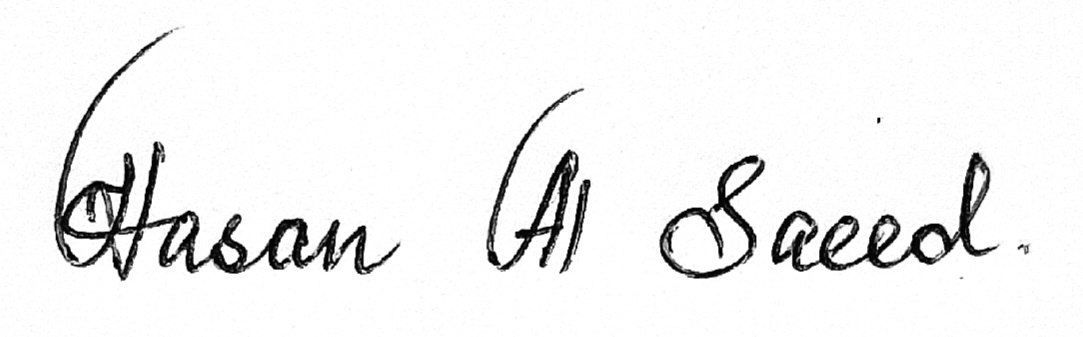 Hasan Al Saeed.